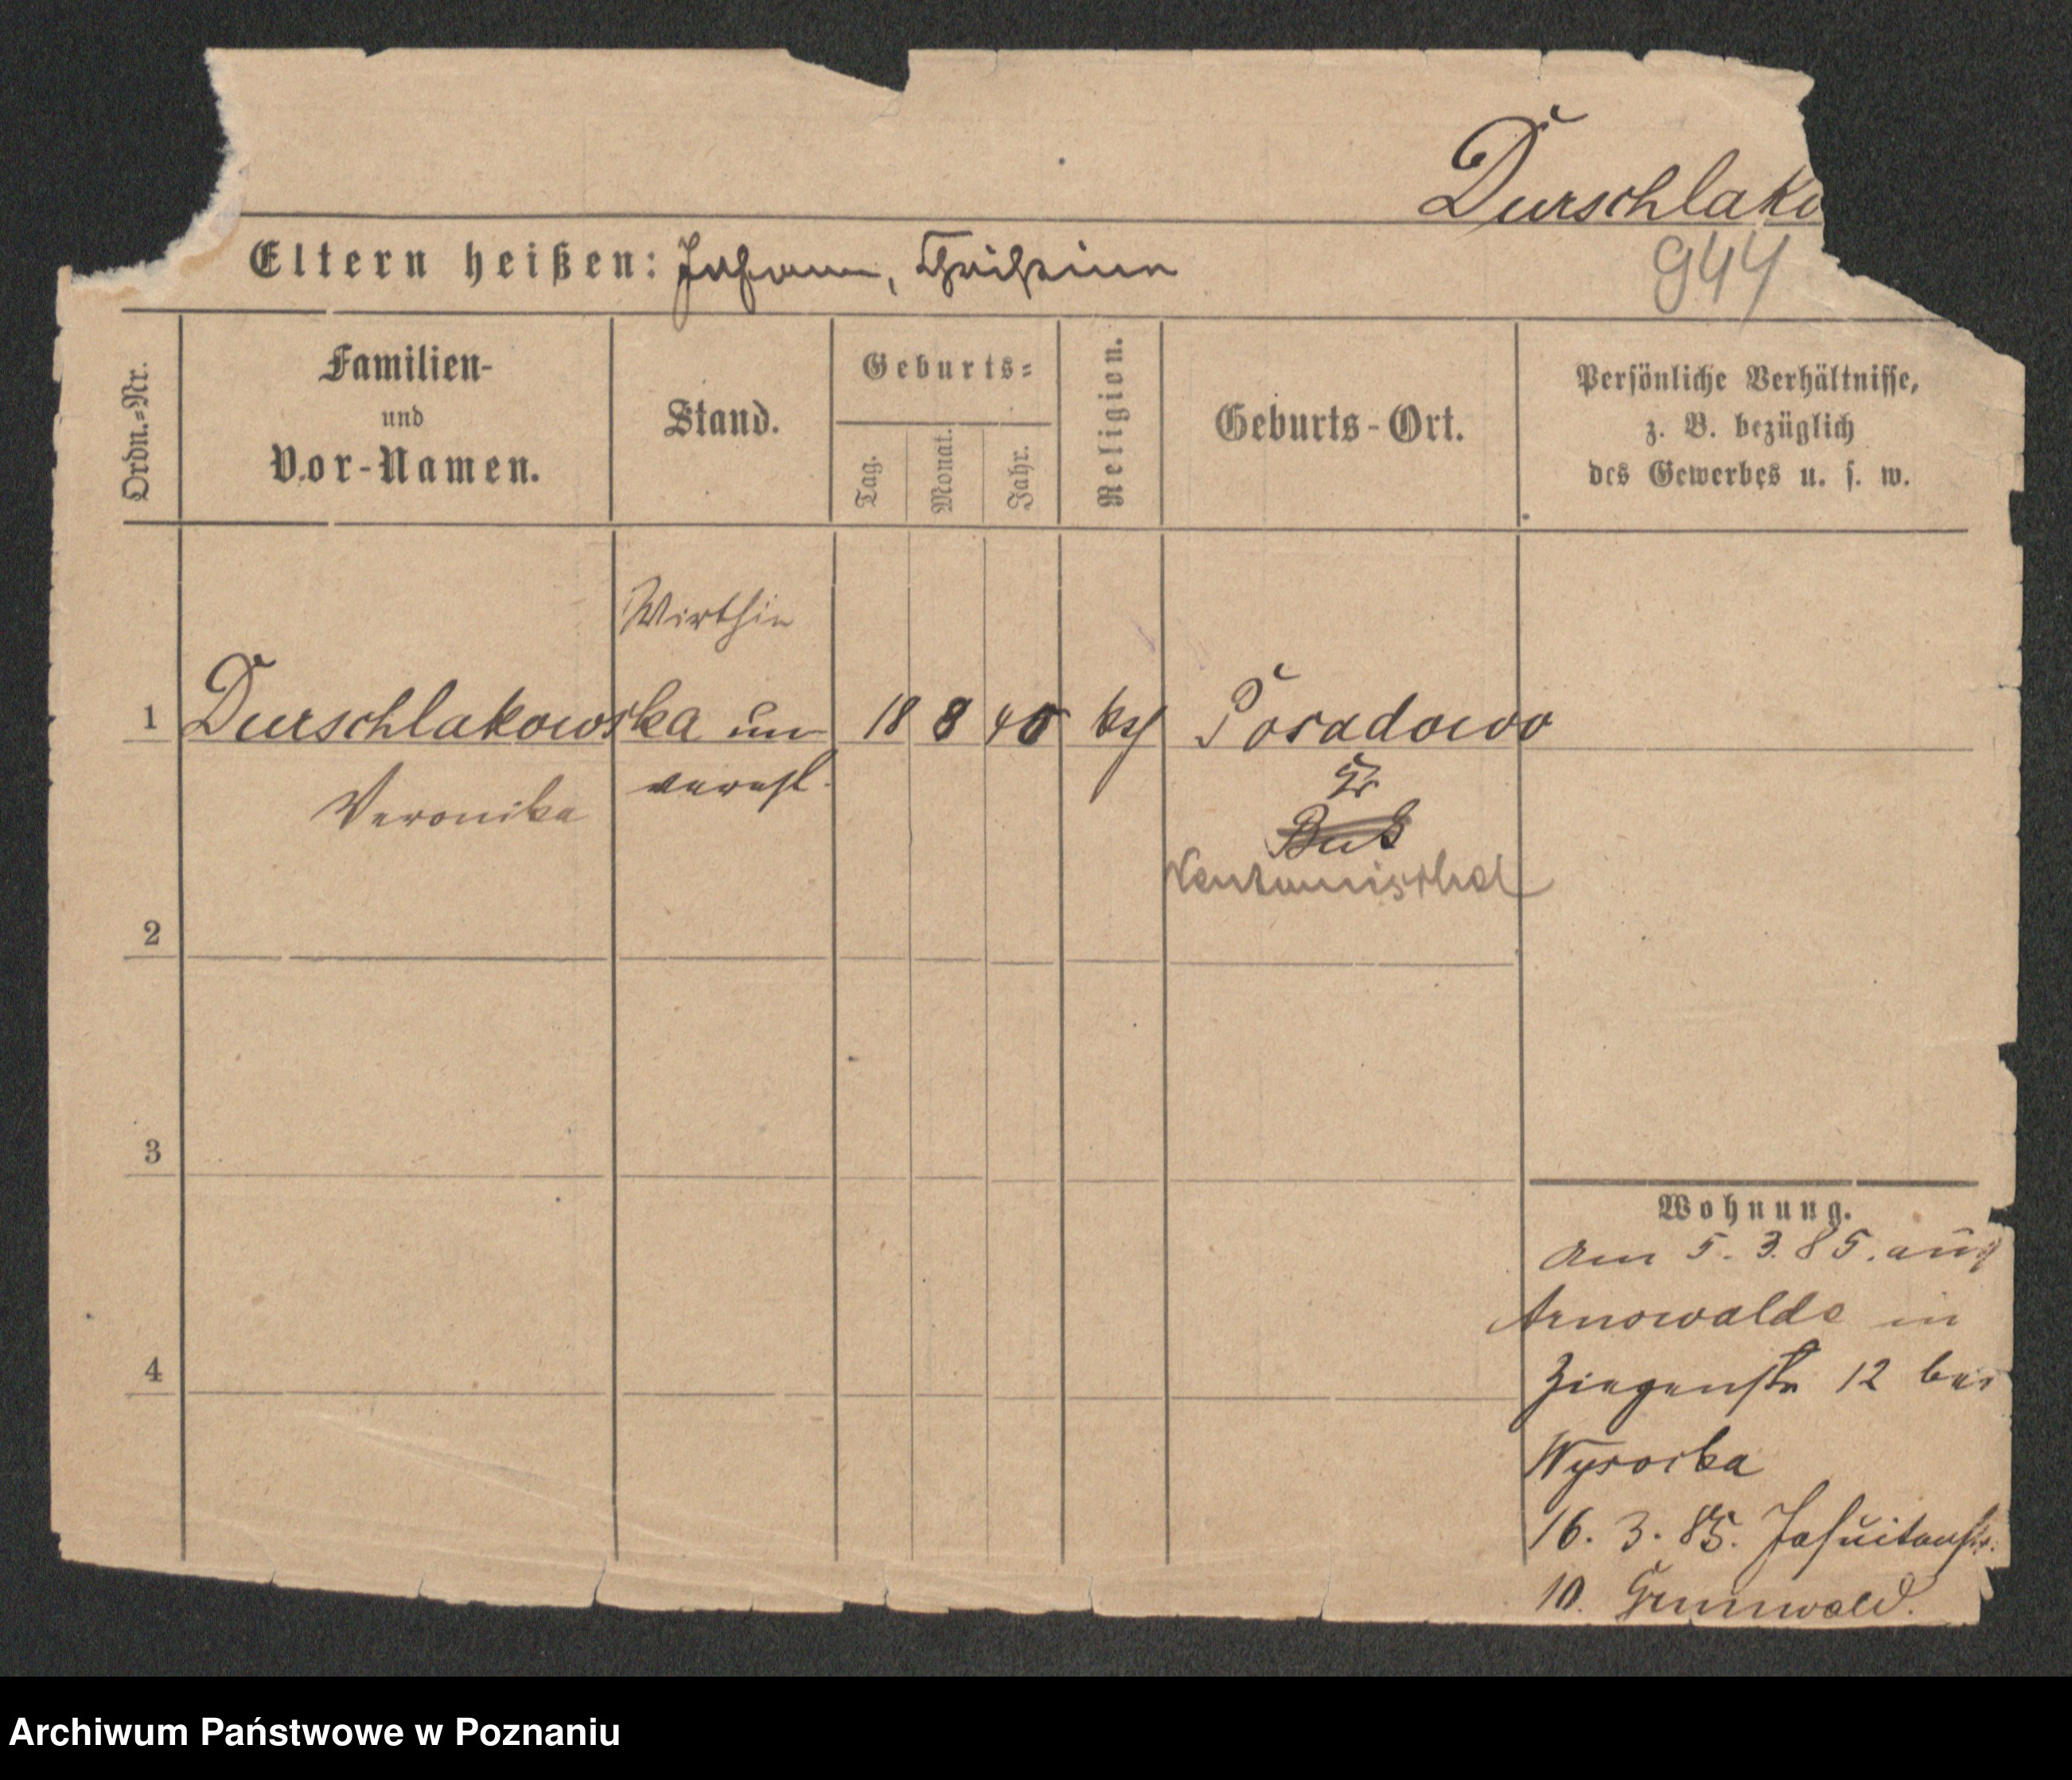 Durschlako
944
Eltern heißen: Johann, Christine
Ordn.=Nr.
Familien-
und
Vor-Namen.
Stand.
Geburts=
Tag.
Monat.
Jahr.
Religion.
Geburts-Ort.
Persönliche Verhältnisse,
z. B. bezüglich
des Gewerbes u. s. w.
Wirthin
1 Durschlakowska un 18 8 40 kth Posadowo
Veronika verehl.
Kr
Buk
Neutomischel
2
3
4
Wohnung.
Am 5. 3. 85. aus
Arnswalde in
Ziegenstr 12 bei
Wysocka
16. 3. 85. Jesuitenstr.
10. Grunwald.
Archiwum Państwowe w Poznaniu